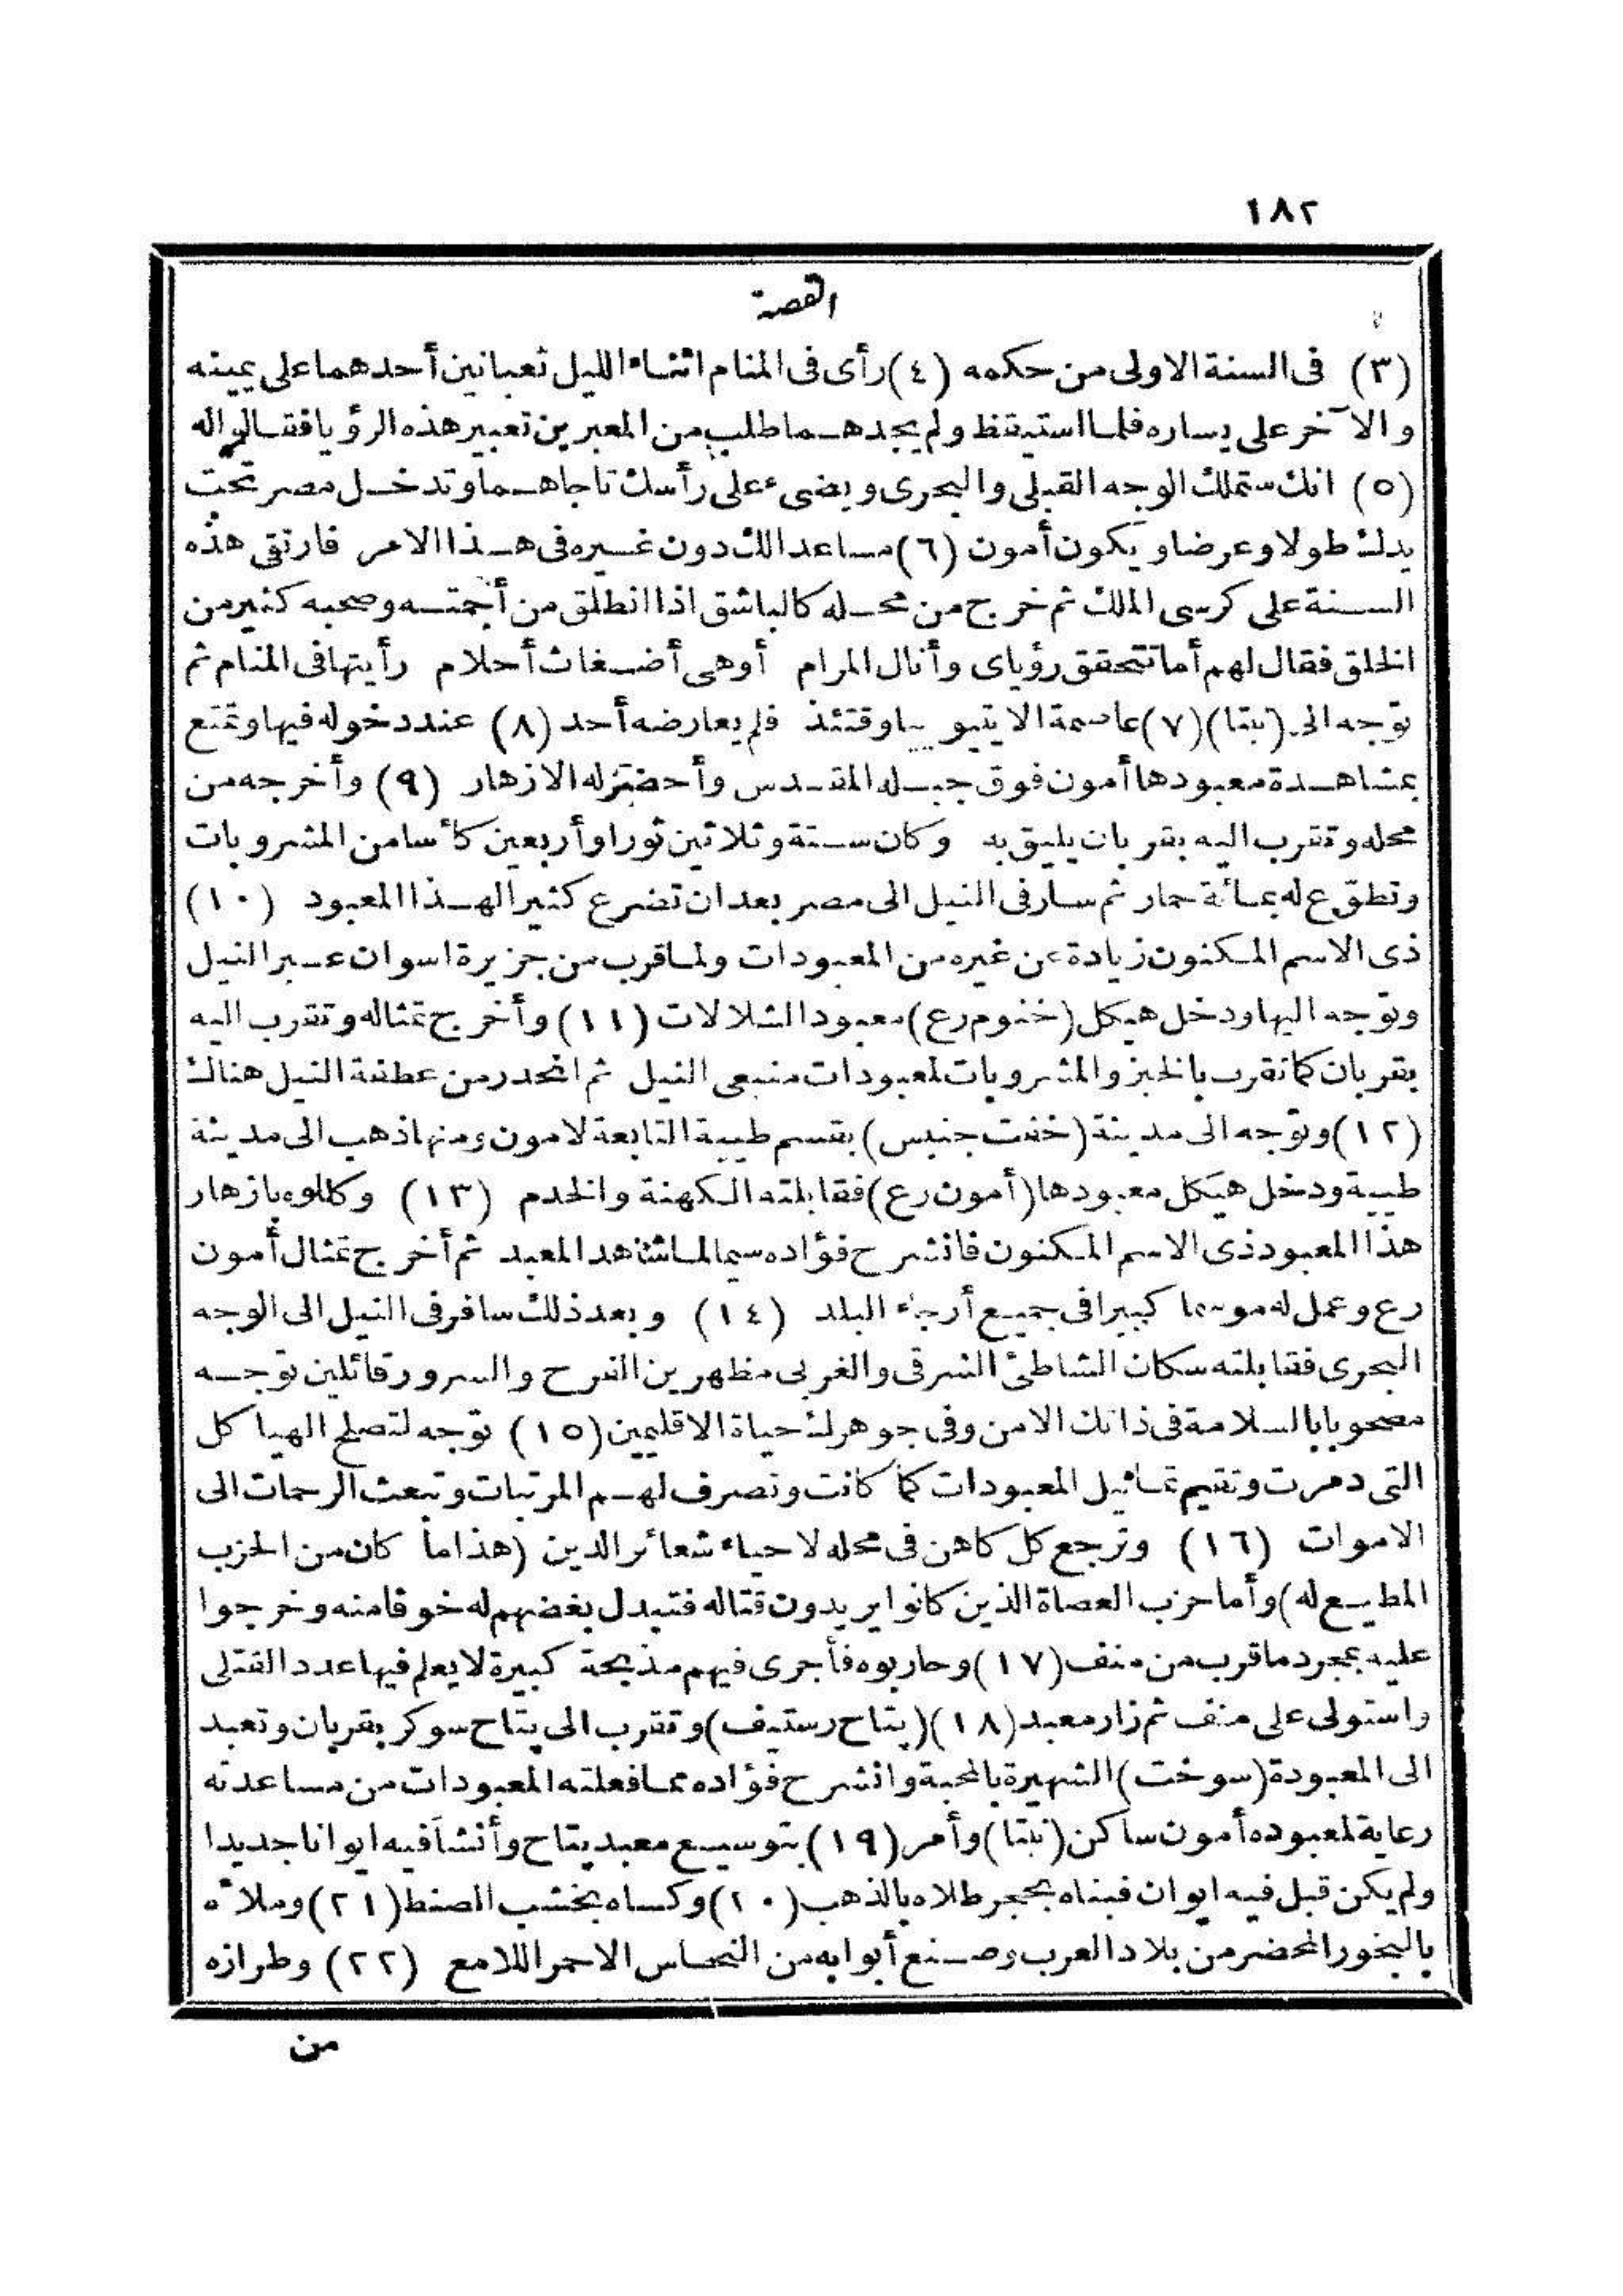 ١٨٢
القصة
(٣) فى السنة الاولى من حكمه (٤) رأى فى المنام اثناء الليل ثعبانين أحدهما على يمينه
والآخر على يساره فلما استيقظ ولم يجدهما طلب من المعبرين تعبير هذه الرؤيا فقالوا له
(٥) انك ستملك الوجه القبلى والبحرى ويضىء على رأسك تاجاهما وتدخل مصر تحت
يدك طولا وعرضا ويكون أمون (٦) مساعدا لك دون غيره فى هذا الامر فارتقى هذه
السنة على كرسى الملك ثم خرج من محله كالباشق اذا انطلق من أجمته وصحبه كثير من
الخلق فقال لهم أما تتحقق رؤياى وأنال المرام أوهى أضغاث أحلام رأيتها فى المنام ثم
توجه الى (نبتا) (٧) عاصمة الايتيوبيا وقتئذ فلم يعارضه أحد (٨) عند دخوله فيها وتمتع
بمشاهدة معبودها أمون فوق جبله المقدس وأحضرله الازهار (٩) وأخرجه من
محله وتقرب اليه بقربان يليق به وكان ستة وثلاثين ثورا وأربعين كأسا من المشروبات
وتطوّع له بمائة حمار ثم سار فى النيل الى مصر بعد ان تضرع كثيرا لهذا المعبود (١٠)
ذى الاسم المكنون زيادة عن غيره من المعبودات ولما قرب من جزيرة اسوان عبر النيل
وتوجه اليها ودخل هيكل (خنوم رع) معبود الشلالات (١١) وأخرج تمثاله وتقرب اليه
بقربان كما تقرب بالخبز والمشروبات لمعبودات منبعى النيل ثم انحدر من عطفة النيل هناك
(١٢) وتوجه الى مدينة (خفت جنبس) بقسم طيبة التابعة لامون ومنها ذهب الى مدينة
طيبة ودخل هيكل معبودها (أمون رع) فقابلته الكهنة والخدم (١٣) وكللوه بازهار
هذا المعبود ذى الاسم المكنون فانشرح فؤاده سيما لما شاهد المعبد ثم أخرج تمثال أمون
رع وعمل له موسما كبيرا فى جميع أرجاء البلد (١٤) وبعد ذلك سافر فى النيل الى الوجه
البحرى فقابلته سكان الشاطئ الشرقى والغربى مظهرين الفرح والسرور قائلين توجه
مصحوبا بالسلامة فى ذاتك الامن وفى جوهرك حياة الاقليمين (١٥) توجه لتصلح الهياكل
التى دمرت وتقيم تماثيل المعبودات كما كانت وتصرف لهم المرتبات وتبعث الرحمات الى
الاموات (١٦) وترجع كل كاهن فى محله لاحياء شعائر الدين (هذا ما كان من الحزب
المطيع له) وأما حزب العصاة الذين كانوا يريدون قتاله فتبدل بغضهم له خوفا منه وخرجوا
عليه بمجرد ما قرب من منف (١٧) وحاربوه فأجرى فيهم مذبحة كبيرة لا يعلم فيها عدد القتلى
واستولى على منف ثم زار معبد (١٨) (بتاح رستيف) وتقرب الى بتاح سوكر بقربان وتعبد
الى المعبودة (سوخت) الشهيرة بالمحبة وانشرح فؤاده مما فعلته المعبودات من مساعدته
رعاية لمعبوده أمون ساكن (نبتا) وأمر (١٩) بتوسيع معبد بتاح وأنشأ فيه ايوانا جديدا
ولم يكن قبل فيه ايوان فبناه بحجر طلاه بالذهب (٢٠) وكساه بخشب الصنط (٢١) وملأه
بالبخور المحضر من بلاد العرب وصنع أبوابه من النحاس الاحمر اللامع (٢٢) وطرازه
من